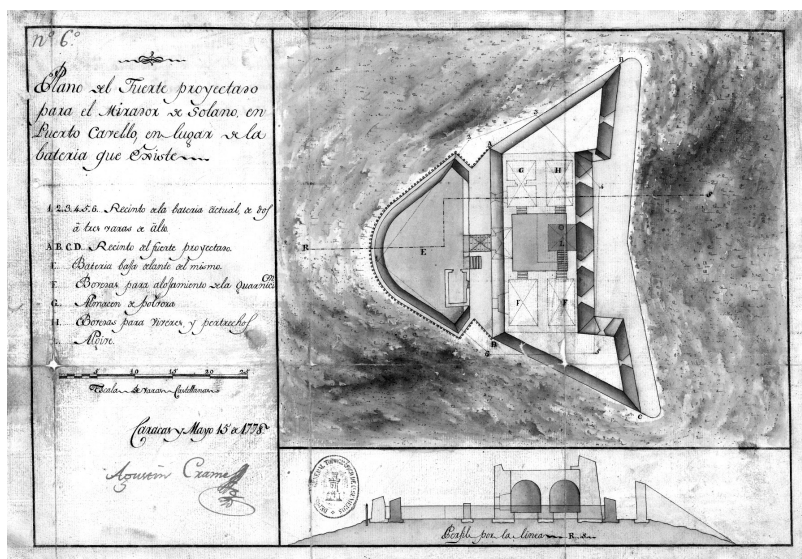 nº 6º
Plano del Fuerte proyectado
para el Mirador de Solano, en
Puerto Cavello, en lugar de la
bateria que existe
1. 2. 3. 4. 5. 6. Recinto de la bateria actual, de dos
à tres varas de alto.
A B C D. Recinto del fuerte proyectado.
E. Bateria baja delante del mismo.
F. Bovedas para alojamiento de la Guarnicⁿ
G. Almacen de polvora
H. Bovedas para viveres, y pertrechos
Algive.
5 10 15 20 25
Escala de varas Castellanas
Caracas y Mayo 15 de 1778
Agustin Crame
B
A
3
G H
4
R
E
L
F F
D
C
Perfil por la linea R. S.